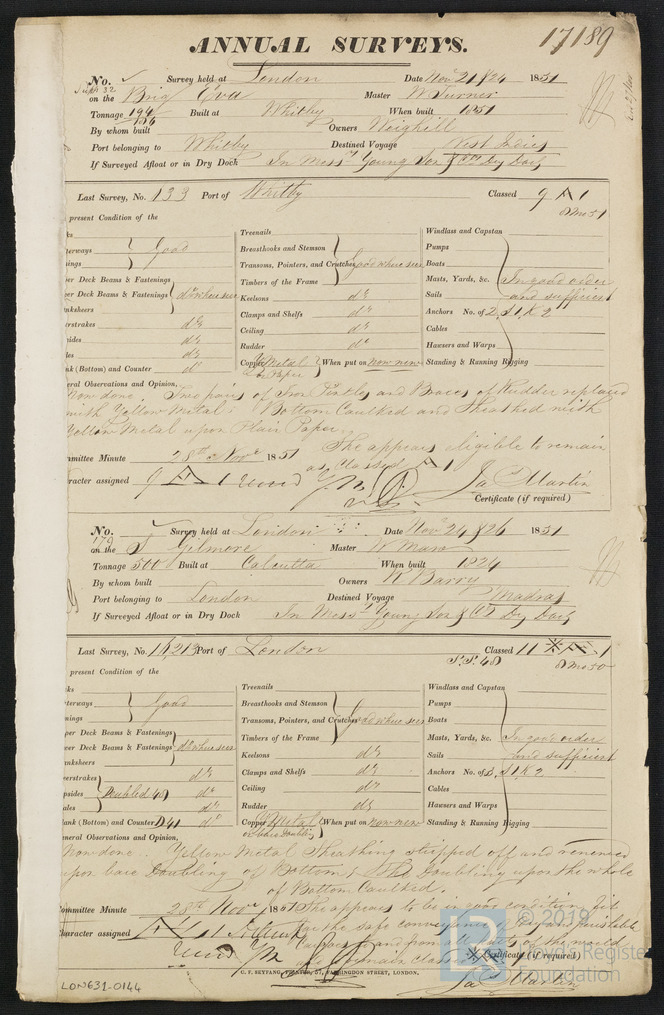 17189
ANNUAL SURVEYS.
No. Survey held at London Date Nov 21 & 24 1851
on the Brig Eva Master W Turner
Tonnage 194 Built at Whitby When built 1851
By whom built Owners Weighill
Port belonging to Whitby Destined Voyage West Indies
If Surveyed Afloat or in Dry Dock In Messrs Young Son & Co Dry Dock
Last Survey, No. 133 Port of Whitby Classed 9 A 1
8 Mo 51
present Condition of the
ks
terways Good
nings
per Deck Beams & Fastenings
wer Deck Beams & Fastenings do where seen
anksheers
erstrakes do
sides do
les do
nk (Bottom) and Counter do
Treenails
Breasthooks and Stemson
Transoms, Pointers, and Crutches Good where seen
Timbers of the Frame
Keelsons do
Clamps and Shelfs do
Ceiling do
Rudder do
Copper Y Metal on Paper When put on now new
Windlass and Capstan
Pumps
Boats
Masts, Yards, &c. In good order
Sails and sufficient
Anchors No. of 2, S1, K2
Cables
Hawsers and Warps
Standing & Running Rigging
eral Observations and Opinion,
Now done. Two pairs of Iron Pintles and Braces of Rudder replaced
with Yellow Metal; Bottom Caulked and Sheathed with
Yellow Metal upon Hair Paper.
She appears eligible to remain
as Classed A 1
mmittee Minute 28th Novr 1851
racter assigned 9 A 1
Ja Martin
Certificate (if required)
No. 179 Survey held at London Date Nov 24 & 26 1851
on the S Gilmore Master W Maw
Tonnage 500 Built at Calcutta When built 1824
By whom built Owners W Barry
Port belonging to London Destined Voyage Madras
If Surveyed Afloat or in Dry Dock In Messrs Young Son & Co Dry Dock
Last Survey, No. 16,213 Port of London Classed 11 A 1
S.S. 48 8 Mo 50
present Condition of the
ks
terways Good
nings
per Deck Beams & Fastenings
wer Deck Beams & Fastenings do where seen
anksheers
eerstrakes do
psides Doubled 49 do
ales do
lank (Bottom) and Counter D41 do
Treenails
Breasthooks and Stemson
Transoms, Pointers, and Crutches Good where seen
Timbers of the Frame
Keelsons do
Clamps and Shelfs do
Ceiling do
Rudder do
Copper Y Metal on bare Doubling When put on now new
Windlass and Capstan
Pumps
Boats
Masts, Yards, &c. In good order
Sails and sufficient
Anchors No. of 3, S1 K2
Cables
Hawsers and Warps
Standing & Running Rigging
eneral Observations and Opinion,
Now done. Yellow Metal Sheathing stripped off and renewed
upon bare Doubling of Bottom & The Doubling upon the whole
of Bottom Caulked.
ommittee Minute 28th Novr 1851
She appears to be in good condition fit
for the safe conveyance of dry and perishable
Cargoes to and from all parts of the world
haracter assigned
to remain classed
Certificate (if required)
Ja Martin
C. F. SEYFANG, PRINTER, 57, FARRINGDON STREET, LONDON.
LON631-0144
© 2019
Lloyd's Register
Foundation